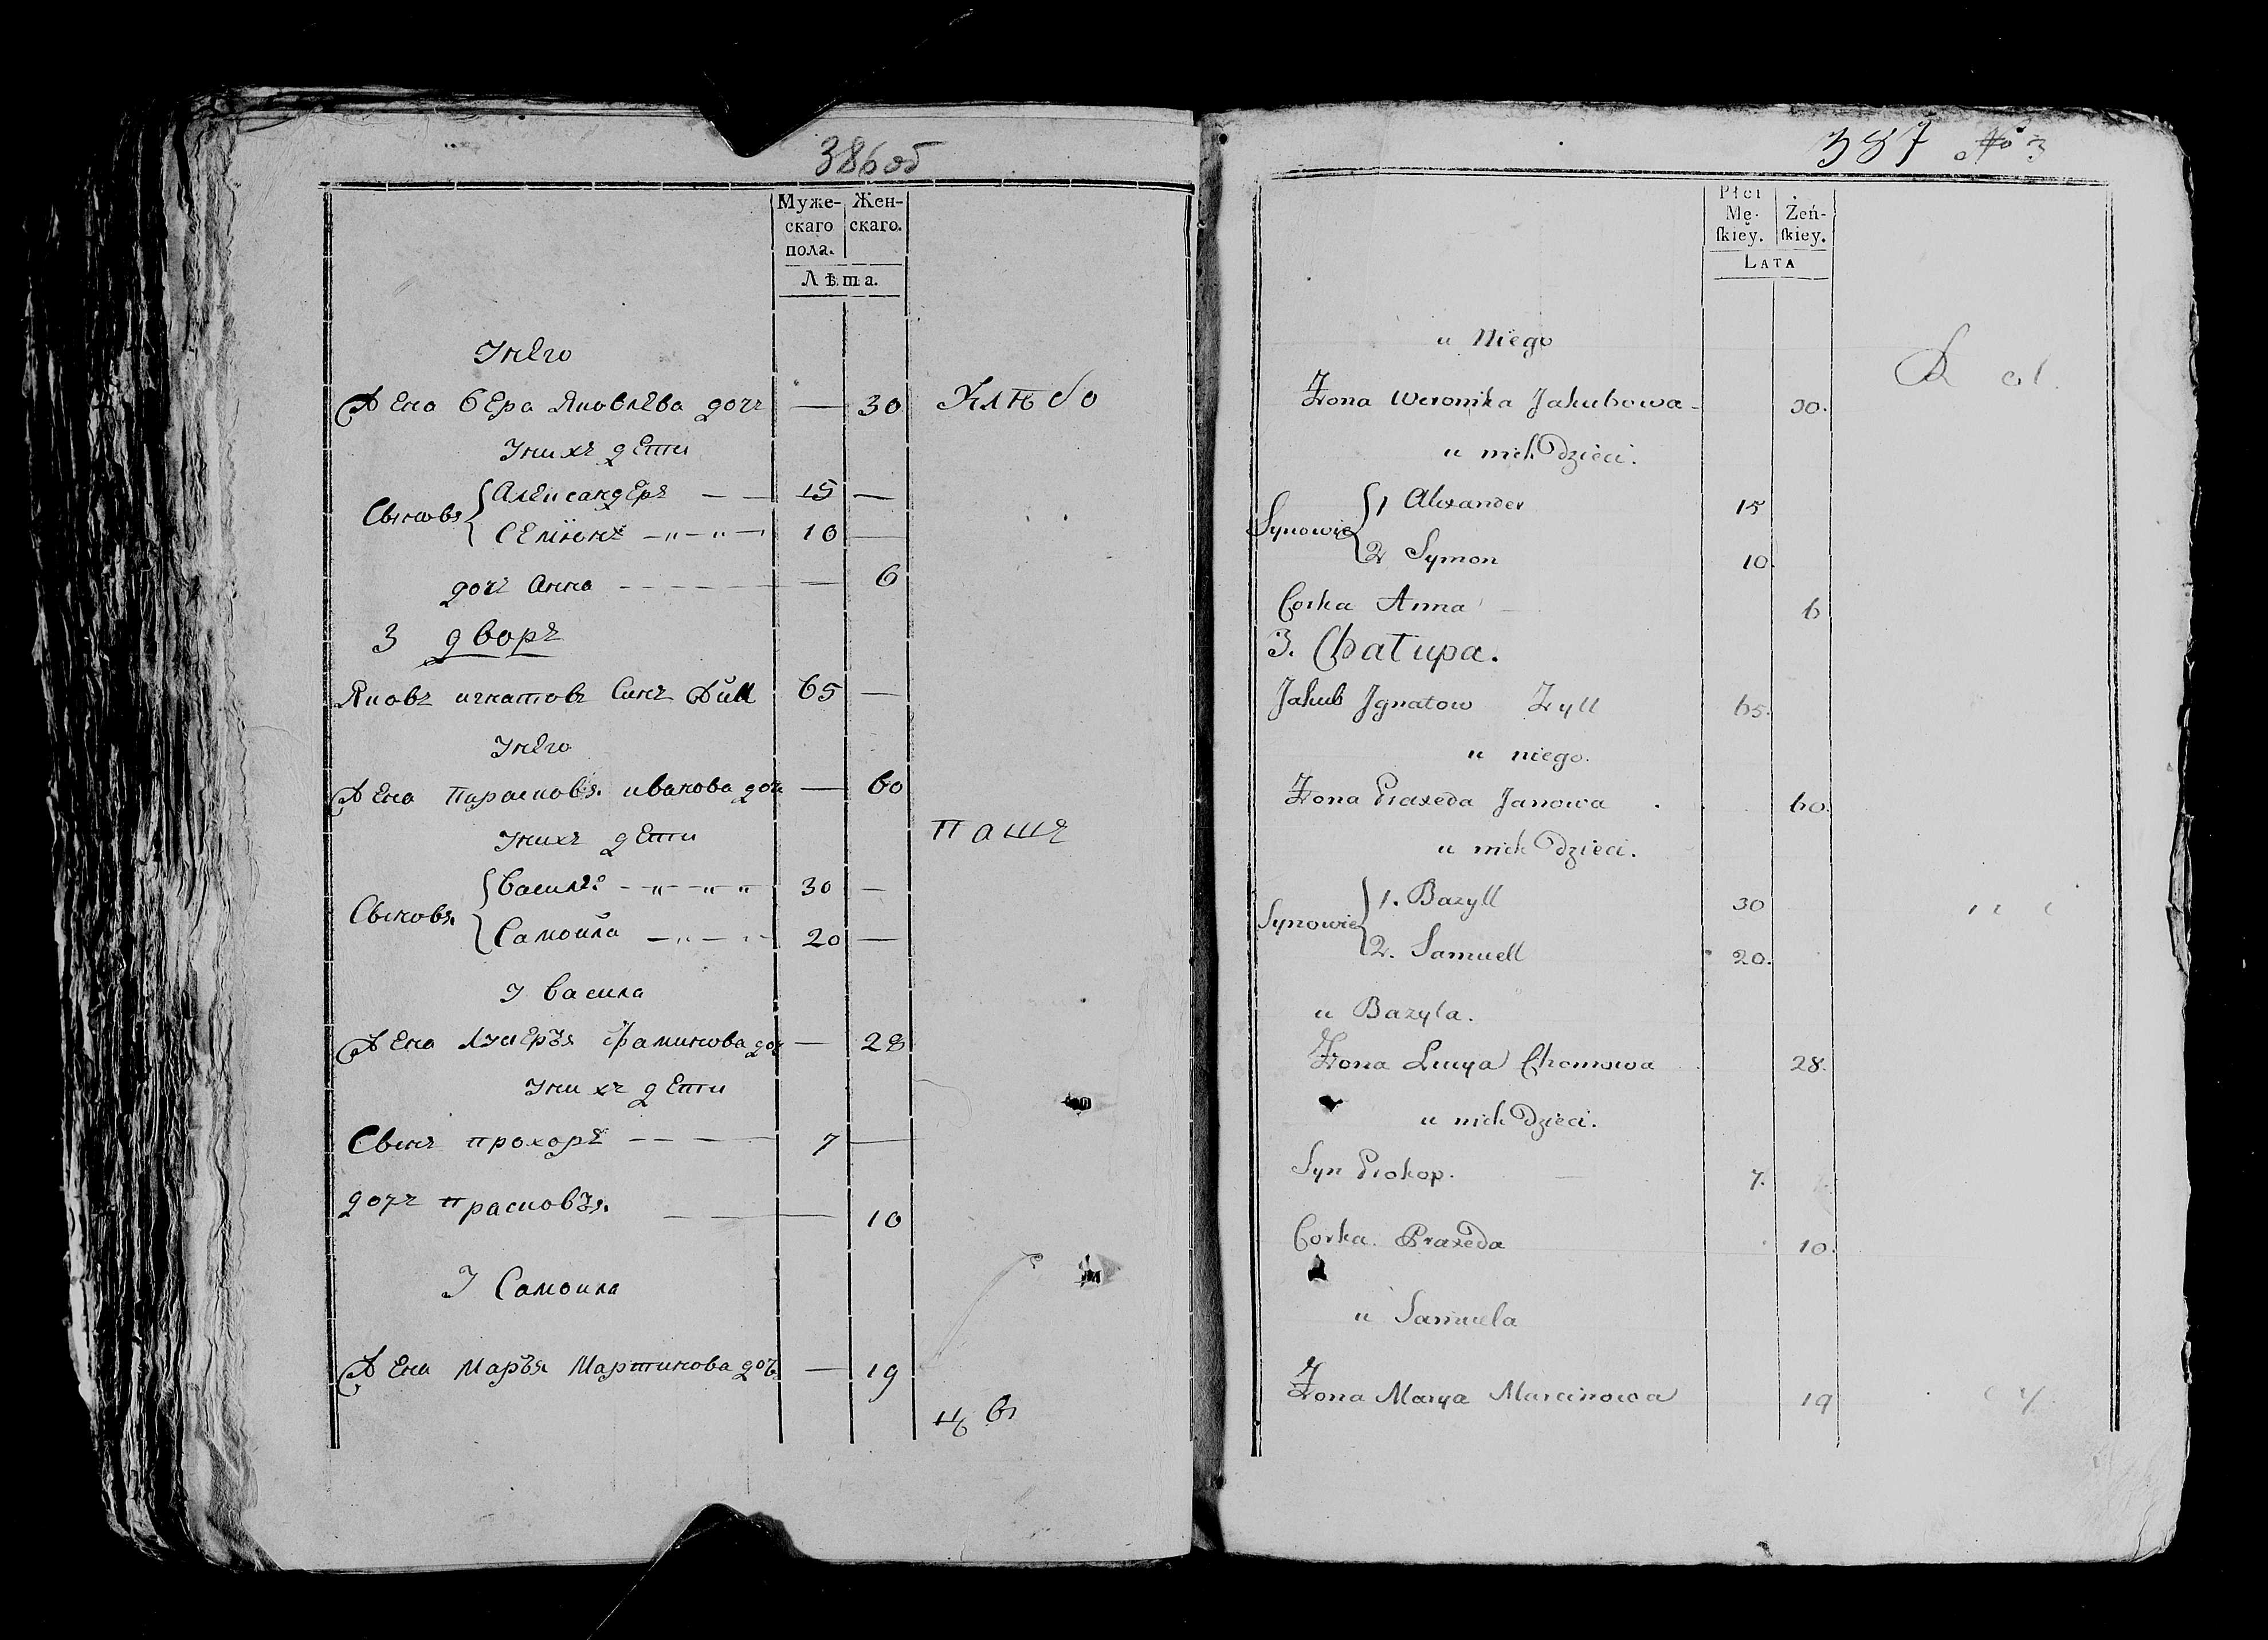 386об
Муже- Жен-
скаго скаго.
пола.
Лѣта.
Унего
Жена Вера Яковлева дочь — 30 Хлѣбо
Унихъ дети
Сыновя
Александеръ — — 15 —
Семіонъ 10 —
дочь Анна — 6
3 дворъ
Яковъ игнатовъ Синъ Жилл 65 —
Унего
Жена Парасковя ивановa дочь — 60
Унихъ дети
пашъ
Сыновя
Василей 30 —
Самойла 20 —
У Василя
Жена Лукеръя Фамикова дочь — 28
Унихъ дети
Сынъ прохоръ 7 —
дочь прасковъя — 10
У Самоила
Жена Маръя Мартинова дочь — 19
цъ вı
387 No 3
Płci
Mę- Żeń-
ſkiey. ſkiey.
LATA
u Niego
Żona Weronika Jakubowa 30.
u nich Dzieci.
Synowie
1 Alexander 15
2 Symon 10
Corka Anna 6
3. Chałupa.
Jakub Jgnatow Żyll 65.
u niego.
Żona Praxeda Janowa 60.
u nich Dzieci.
Synowie
1. Bazyll 30
2. Samuell 20.
u Bazyla.
Żona Lucya Chomowa 28.
u nich Dzieci.
Syn Prokop. 7.
Corka Praxeda 10.
u Samuela
Żona Marya Marcinowa 19